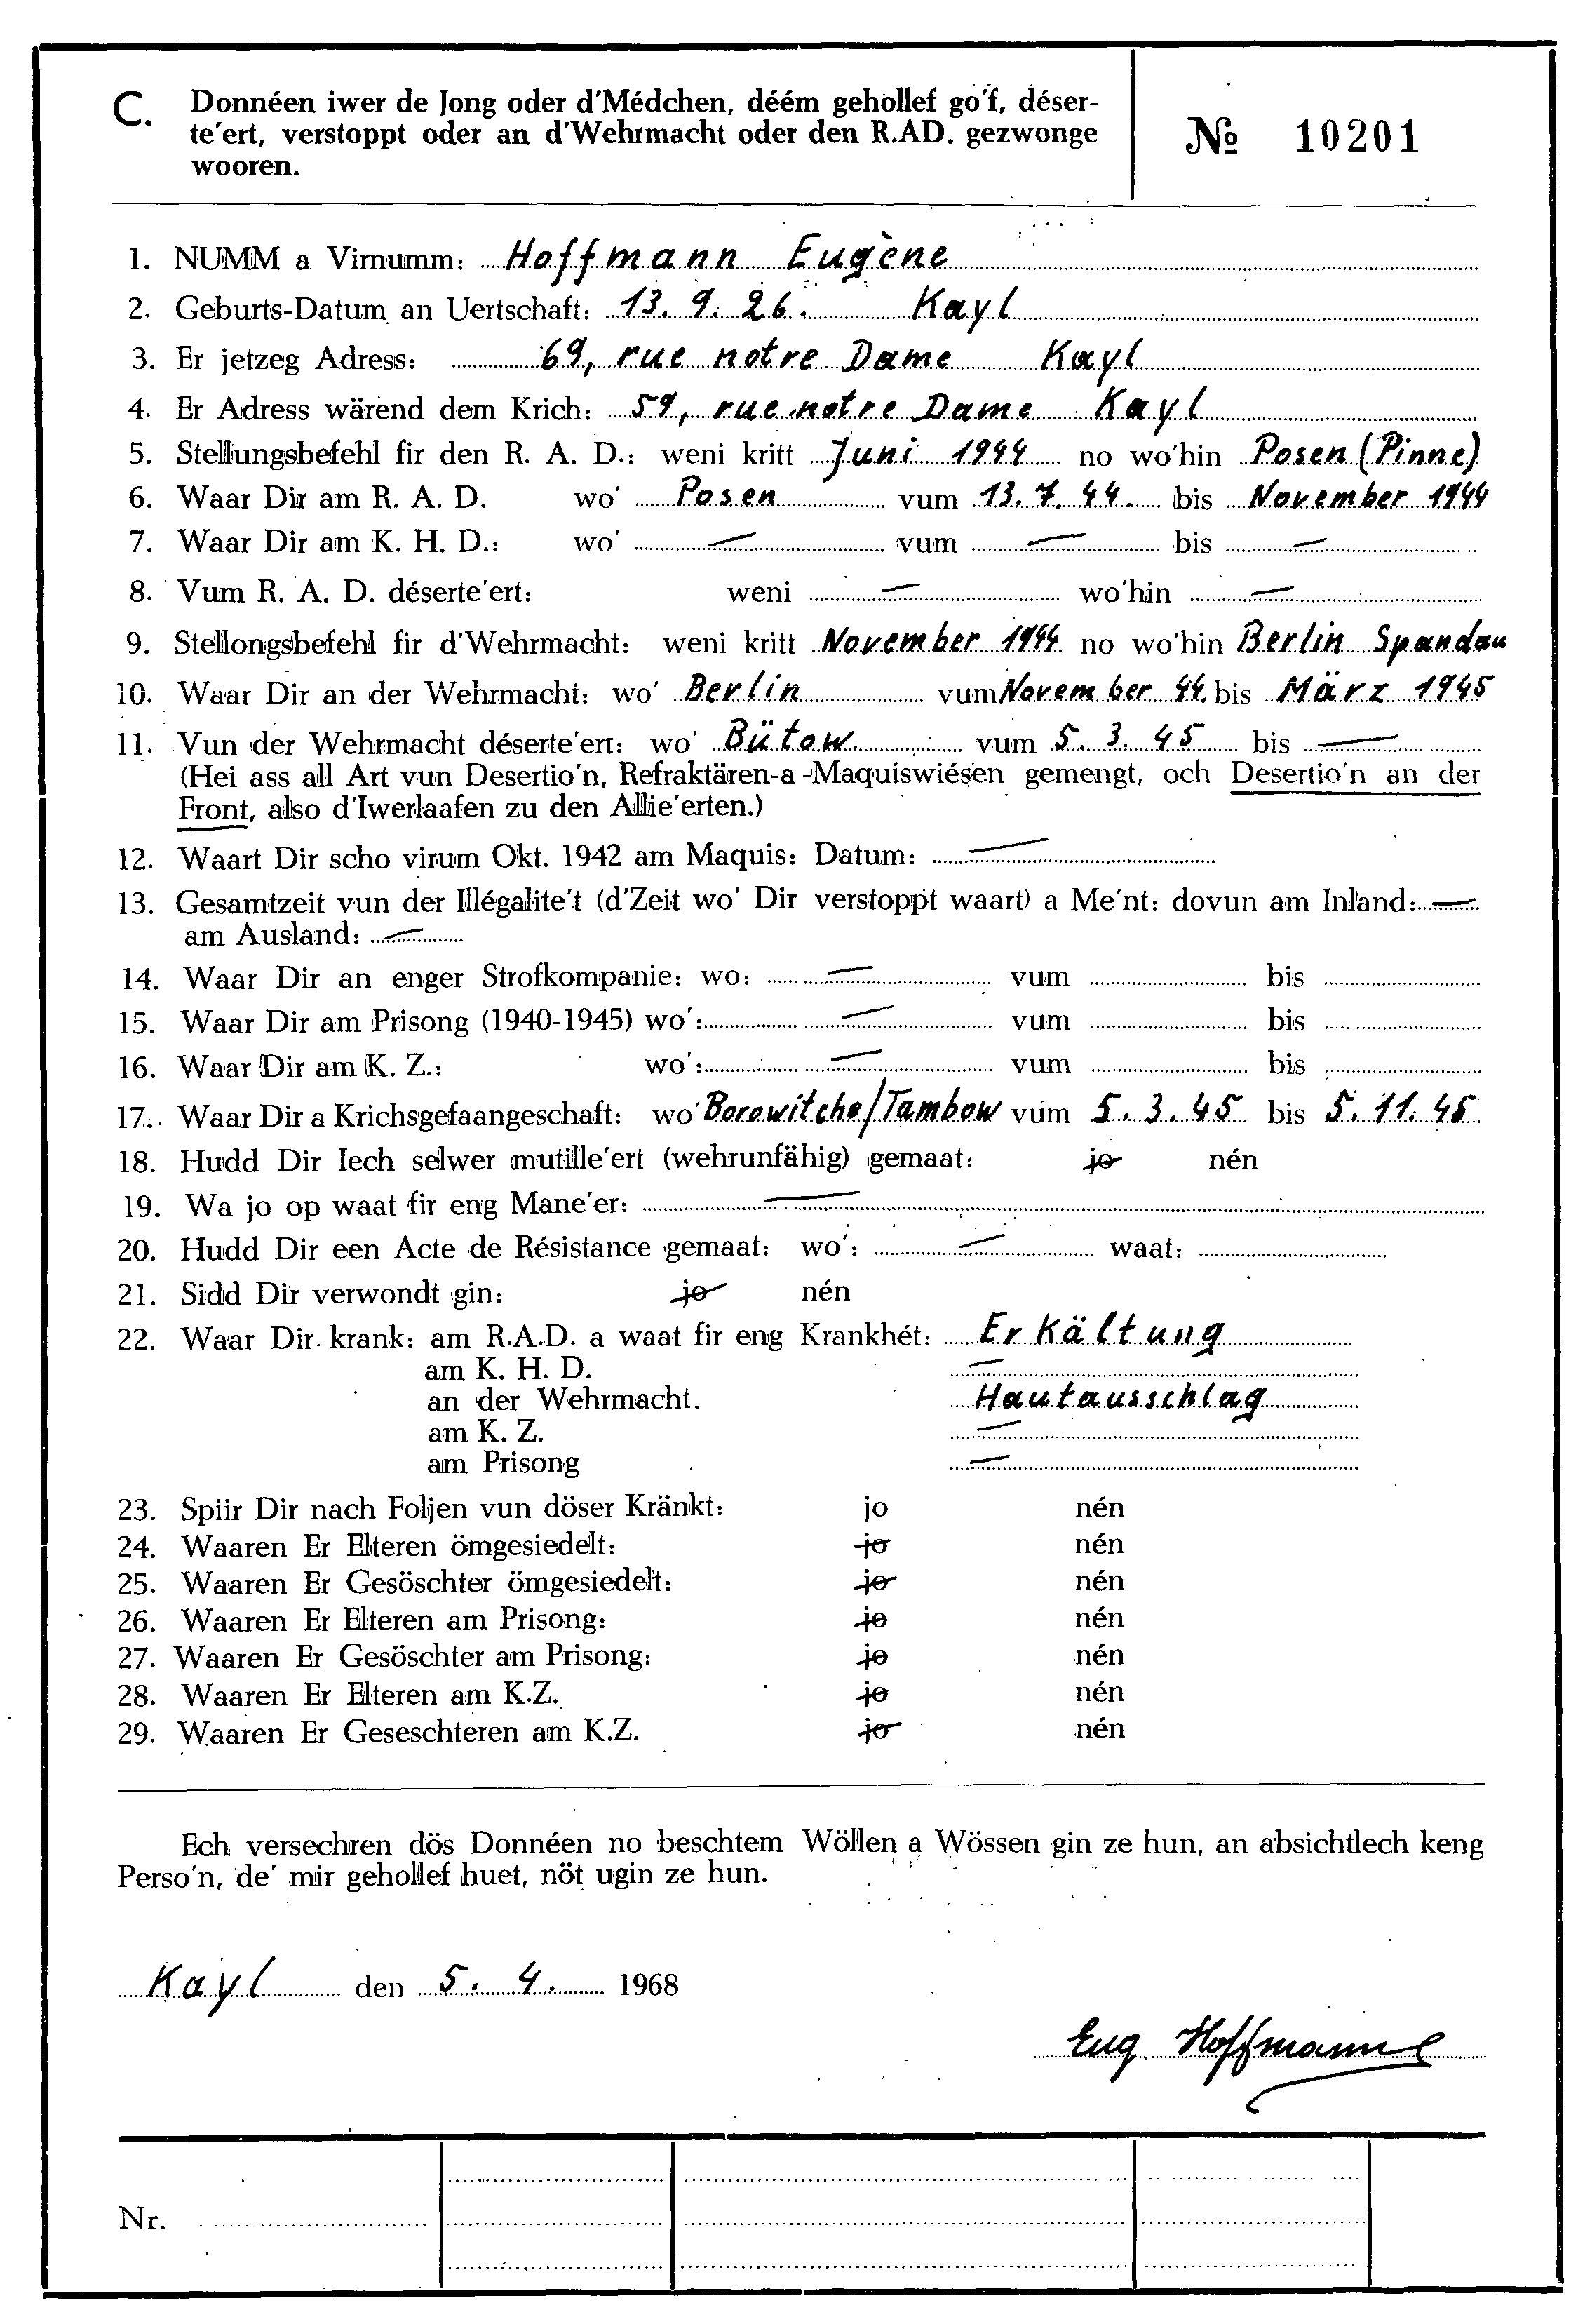 C. Donnéen iwer de Jong oder d'Médchen, déém gehollef go'f, déser-
te'ert, verstoppt oder an d'Wehrmacht oder den R.AD. gezwonge
wooren.
№ 10201
1. NUMM a Virnumm: Hoffmann Eugène
2. Geburts-Datum an Uertschaft: 13. 9. 26. Kayl
3. Er jetzeg Adress: 69, rue notre Dame Kayl
4. Er Adress wärend dem Krich: 59, rue notre Dame Kayl
5. Stellungsbefehl fir den R. A. D.: weni kritt Juni 1944 no wo'hin Posen (Pinne)
6. Waar Dir am R. A. D. wo' Posen vum 13. 7. 44. bis November 1944
7. Waar Dir am K. H. D.: wo' — vum — bis —
8. Vum R. A. D. déserte'ert: weni — wo'hin —
9. Stellongsbefehl fir d'Wehrmacht: weni kritt November 1944 no wo'hin Berlin Spandau
10. Waar Dir an der Wehrmacht: wo' Berlin vum November 44. bis März 1945
11. Vun der Wehrmacht déserte'ert: wo' Bütow vum 5. 3. 45 bis —
(Hei ass all Art vun Desertio'n, Refraktären-a-Maquiswiésen gemengt, och Desertio'n an der
Front, also d'Iwerlaafen zu den Allie'erten.)
12. Waart Dir scho virum Okt. 1942 am Maquis: Datum: —
13. Gesamtzeit vun der Illégalite't (d'Zeit wo' Dir verstoppt waart) a Me'nt: dovun am Inland: —
am Ausland: —
14. Waar Dir an enger Strofkompanie: wo: — vum bis
15. Waar Dir am Prisong (1940-1945) wo': — vum bis
16. Waar Dir am K. Z.: wo': — vum bis
17. Waar Dir a Krichsgefaangeschaft: wo' Borowitche/Tambow vum 5. 3. 45 bis 5. 11. 45
18. Hudd Dir Iech selwer mutille'ert (wehrunfähig) gemaat: jo nén
19. Wa jo op waat fir eng Mane'er: —
20. Hudd Dir een Acte de Résistance gemaat: wo': — waat:
21. Sidd Dir verwondt gin: jo nén
22. Waar Dir krank: am R.A.D. a waat fir eng Krankhét: Erkältung
am K. H. D. —
an der Wehrmacht. Hautausschlag
am K. Z. —
am Prisong —
23. Spiir Dir nach Foljen vun döser Kränkt: jo nén
24. Waaren Er Elteren ömgesiedelt: jo nén
25. Waaren Er Gesöschter ömgesiedelt: jo nén
26. Waaren Er Elteren am Prisong: jo nén
27. Waaren Er Gesöschter am Prisong: jo nén
28. Waaren Er Elteren am K.Z. jo nén
29. Waaren Er Geseschteren am K.Z. jo nén
Ech versechren dös Donnéen no beschtem Wöllen a Wössen gin ze hun, an absichtlech keng
Perso'n, de' mir gehollef huet, nöt ugin ze hun.
Kayl den 5. 4. 1968
Eug. Hoffmann
Nr.